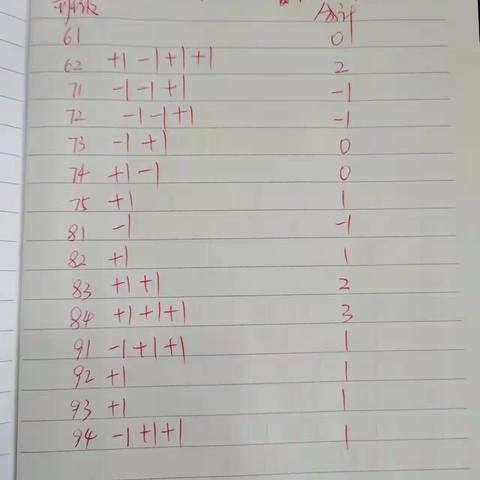 班级 合计
61 0
62 +1 -1 +1 +1 2
71 -1 -1 +1 -1
72 -1 -1 +1 -1
73 -1 +1 0
74 +1 -1 0
75 +1 1
81 -1 -1
82 +1 1
83 +1 +1 2
84 +1 +1 +1 3
91 -1 +1 +1 1
92 +1 1
93 +1 1
94 -1 +1 +1 1